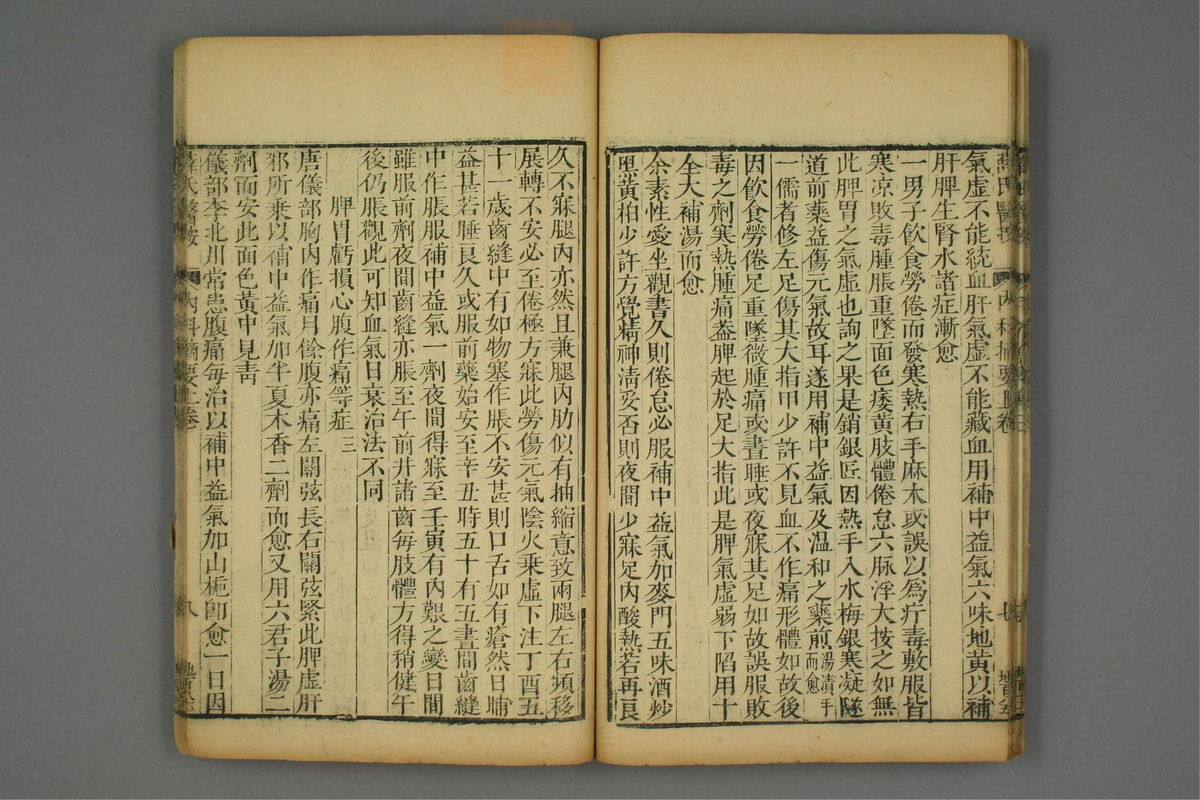 氣虛不能統血肝氣虛不能藏血用補中益氣六味地黃以補
肝脾生腎水諸症漸愈
一男子飲食勞倦而發寒熱右手麻木或誤以爲疔毒敷服皆
寒凉敗毒腫脹重墜面色痿黃肢體倦怠六脉浮大按之如無
此脾胃之氣虛也詢之果是銷銀匠因熱手入水梅銀寒凝隧
道前藥益傷元氣故耳遂用補中益氣及温和之藥煎湯漬手而愈
一儒者修左足傷其大指甲少許不見血不作痛形體如故後
因飲食勞倦足重墜微腫痛或晝睡或夜寐其足如故誤服敗
毒之劑寒熱腫痛葢脾起於足大指此是脾氣虛弱下陷用十
全大補湯而愈
余素性愛坐觀書久則倦怠必服補中益氣加麥門五味酒炒
黑黃柏少許方覺精神淸妥否則夜間少寐足內酸熱若再良
久不寐腿內亦然且兼腿內肋似有抽縮意致兩腿左右頻移
展轉不安必至倦極方寐此勞傷元氣陰火乘虛下注丁酉五
十一歲齒縫中有如物塞作脹不安甚則口舌如有瘡然日晡
益甚若睡良久或服前藥始安至辛丑時五十有五晝間齒縫
中作脹服補中益氣一劑夜間得寐至壬寅有內艱之變日間
雖服前劑夜間齒縫亦脹至午前幷諸齒每肢體方得稍健午
後仍脹觀此可知血氣日衰治法不同
脾胃虧損心腹作痛等症三
唐儀部胸內作痛月餘腹亦痛左關弦長右關弦緊此脾虛肝
邪所乘以補中益氣加半夏木香二劑而愈又用六君子湯二
劑而安此面色黃中見靑
儀部李北川常患腹痛每治以補中益氣加山梔卽愈一日因
薛氏醫按
內科摘要上卷
八